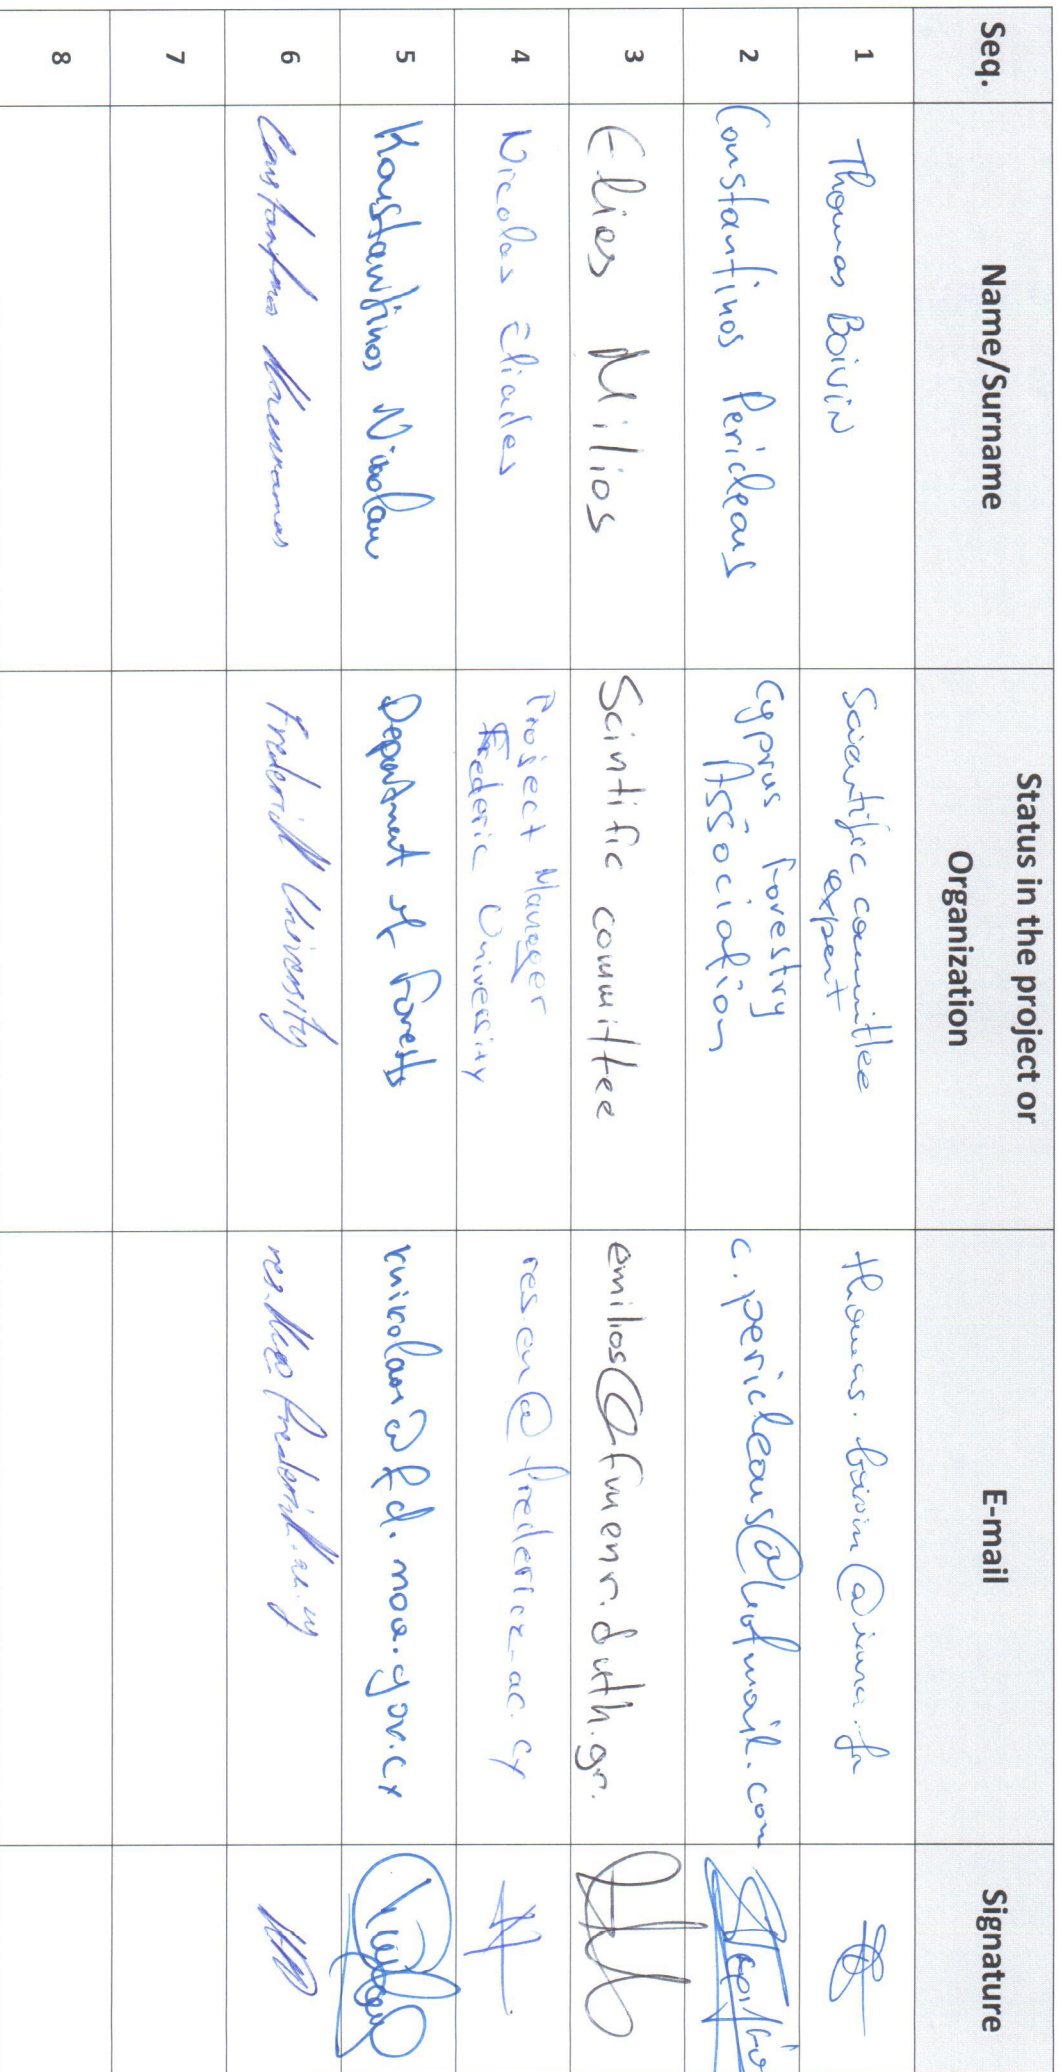 Seq.
Name/Surname
Status in the project or
Organization
E-mail
Signature
1
Thomas Boivin
Scientific committee
expert
thomas.boivin@inra.fr
2
Constantinos Pericleous
Cyprus Forestry
Association
c.pericleous@hotmail.com
3
Elias Milios
Scintific committee
emilios@fmenr.duth.gr.
4
Nicolas Eliades
Project Manager
Frederic University
res.en@frederick.ac.cy
5
Konstantinos Nicolaou
Department of Forests
knikolaou@fd.moa.gov.cy
6
Constantinos
Frederick University
7
8